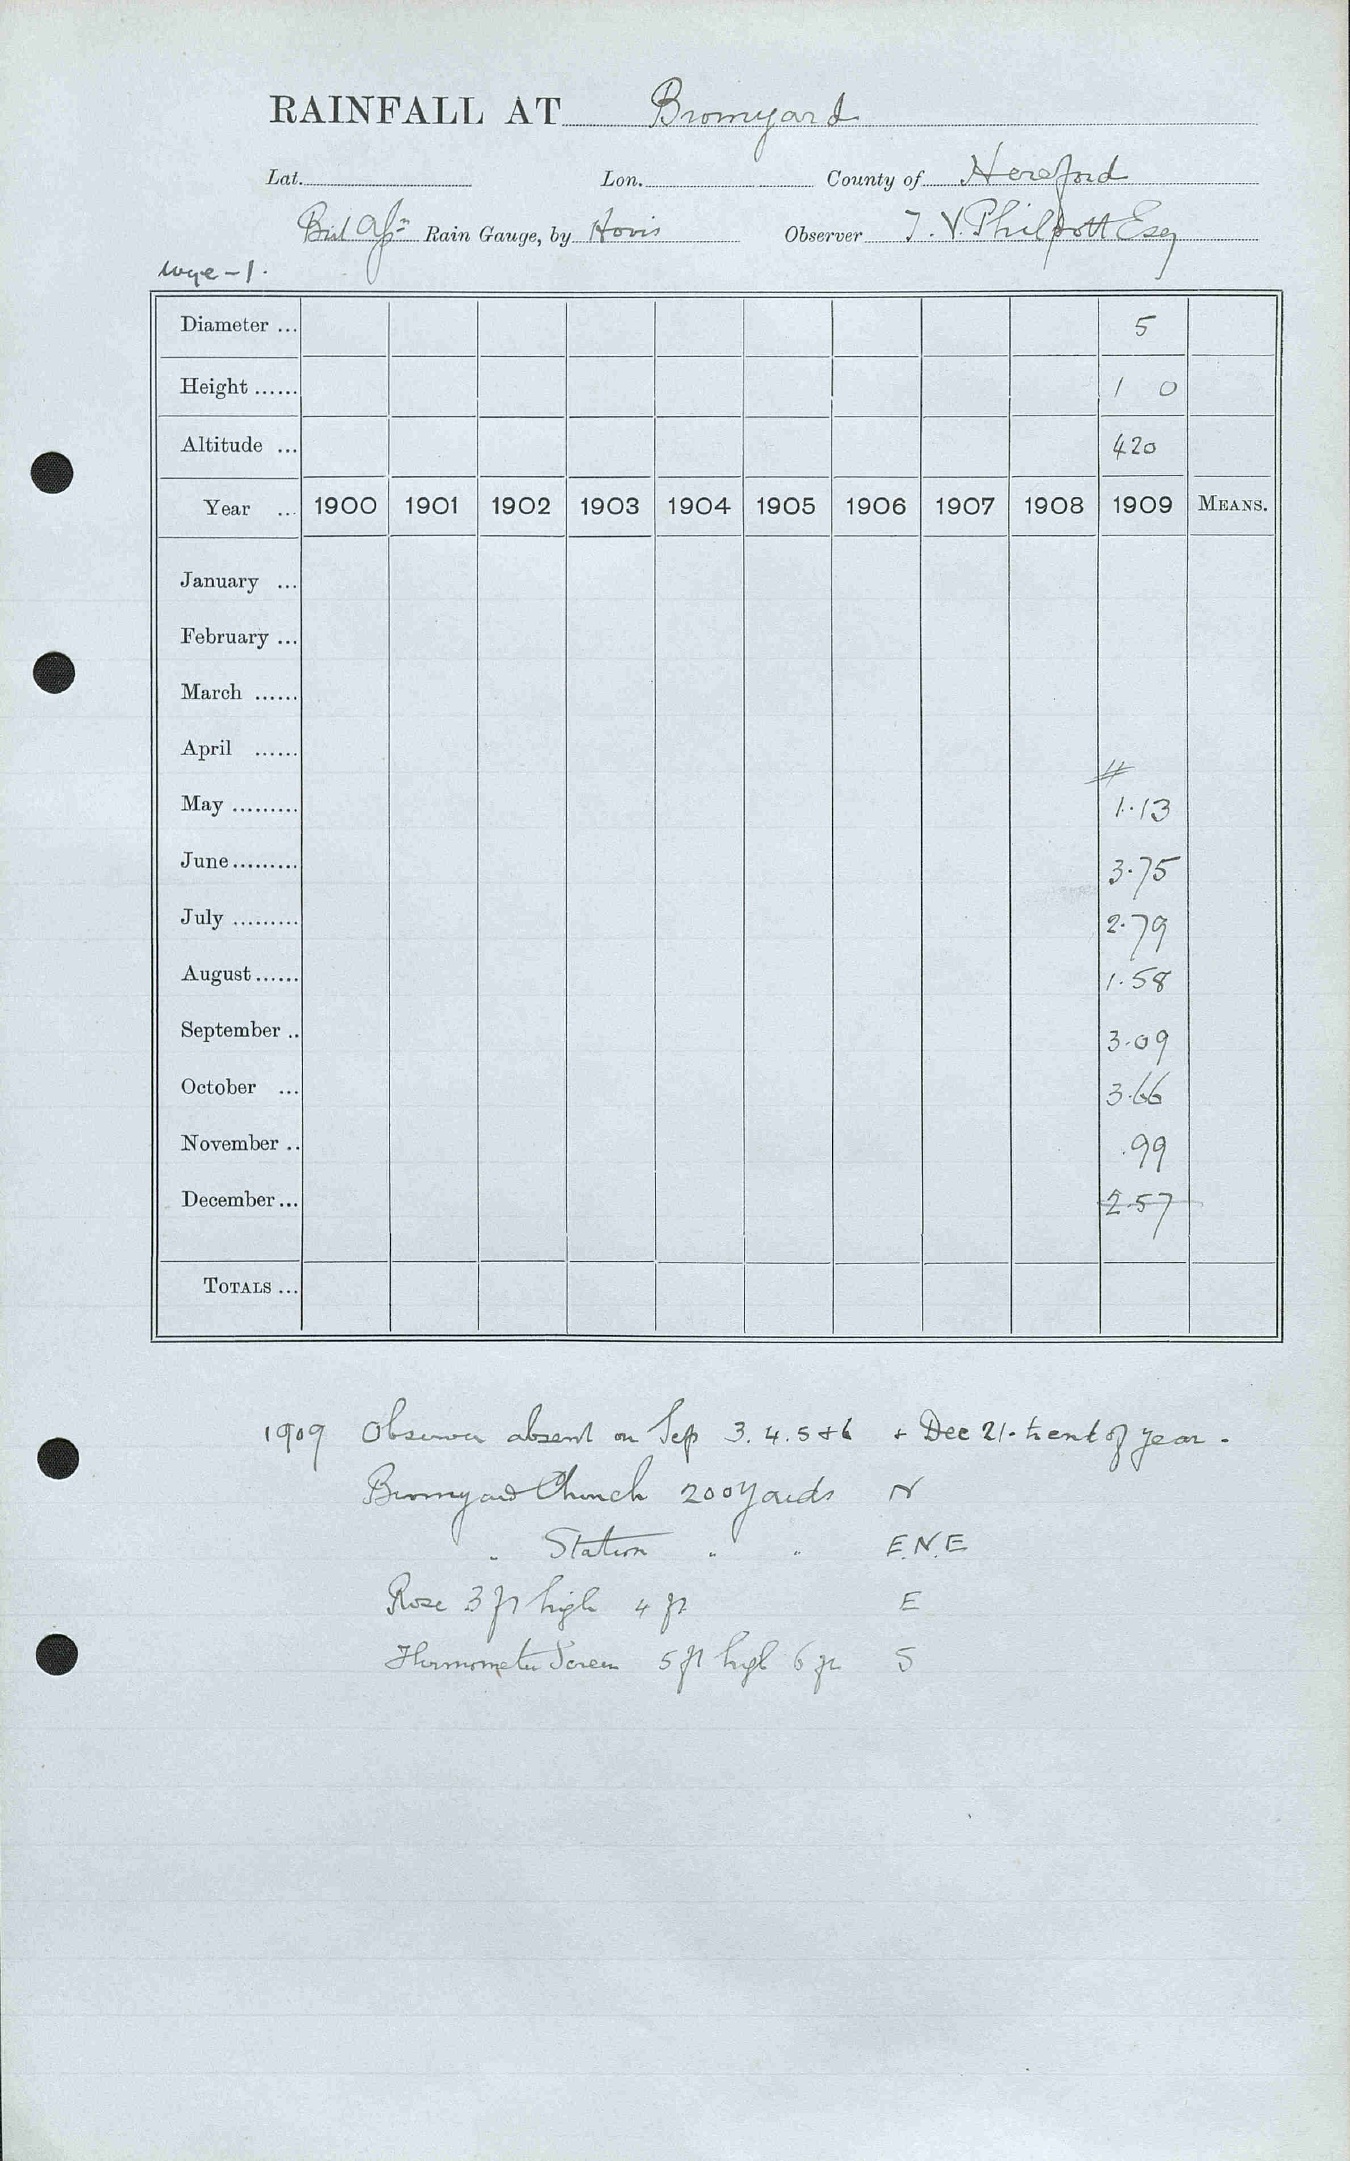 RAINFALL AT Bromyard
Lat. Lon. County of Hereford
Rain Gauge, by Hovis Observer T. V. Philpott Esq
Wye - 1.
Diameter ... 5
Height ...... 1 0
Altitude ... 420
Year ... 1900 1901 1902 1903 1904 1905 1906 1907 1908 1909 MEANS.
January ...
February ...
March ......
April ......
May ......... 1.13
June ......... 3.75
July ......... 2.79
August ...... 1.58
September .. 3.09
October ... 3.66
November .. .99
December ... 2.57
TOTALS ...
1909 Observer absent on Sep 3. 4. 5 + 6 + Dec 21. to end of year.
Bromyard Church 200 yards N
" Station " " E.N.E
Rose 3 ft high 4 ft E
Thermometer Screen 5 ft high 6 ft S